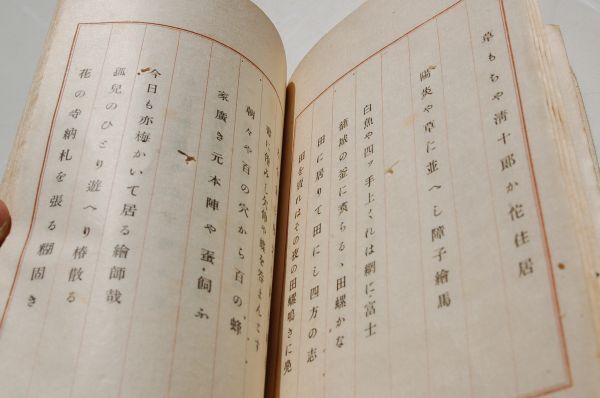 草もちや淸十郎か花住居
陽炎や草に並へし障子繪馬
白魚や四ッ手上くれは網に富士
蒲城の釜に煮らるゝ田螺かな
田に居りて田にし四方の志
田を賣れはその夜の田螺鳴きに鳧
朝々や百の穴から百の蜂
家廣き元本陣や蚕飼ふ
今日も亦梅かいて居る繪師哉
孤兒のひとり遊へり椿散る
花の寺納札を張る糊固き